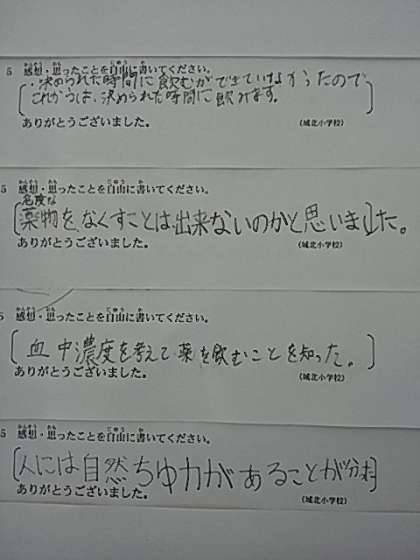 5 感想・思ったことを自由に書いてください。
・決められた時間に飲むができていなかったので
これからは、決められた時間に飲みます。
ありがとうございました。 (城北小学校)
5 感想・思ったことを自由に書いてください。
危険な
薬物をなくすことは出来ないのかと思いました。
ありがとうございました。 (城北小学校)
5 感想・思ったことを自由に書いてください。
血中濃度を考えて薬を飲むことを知った。
ありがとうございました。 (城北小学校)
5 感想・思ったことを自由に書いてください。
人には自然ちゆ力があることが分かた
ありがとうございました。 (城北小学校)